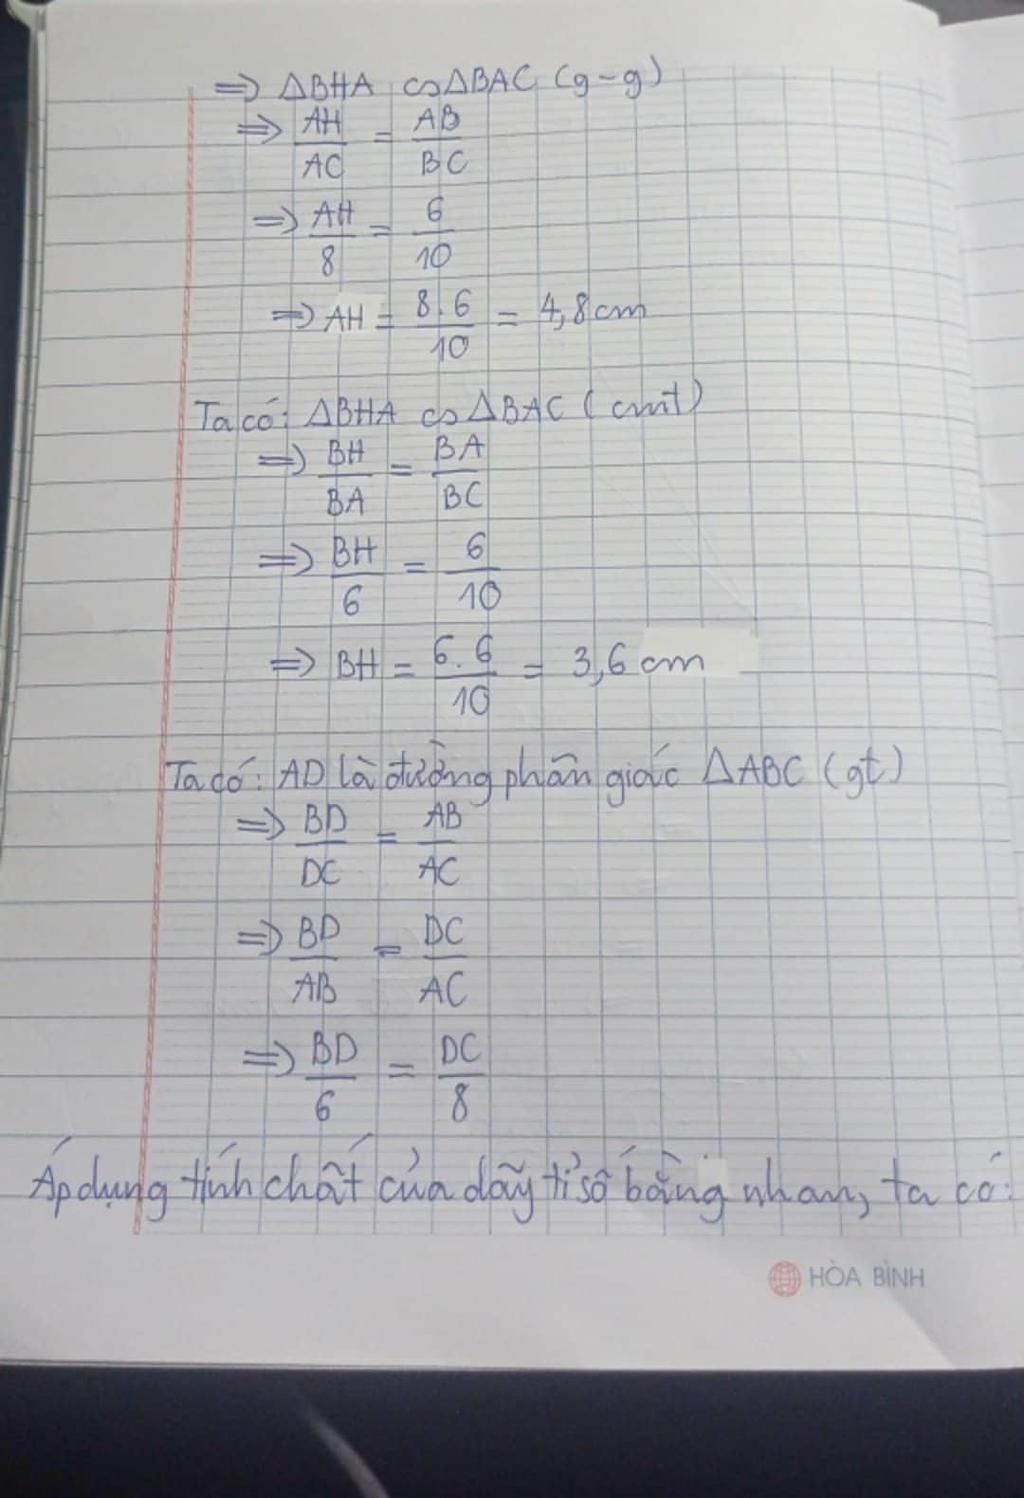 ⇒ ΔBHA ∽ ΔBAC (g-g)
⇒ AH/AC = AB/BC
⇒ AH/8 = 6/10
⇒ AH = 8.6/10 = 4,8cm
Ta có: ΔBHA ∽ ΔBAC (cmt)
⇒ BH/BA = BA/BC
⇒ BH/6 = 6/10
⇒ BH = 6.6/10 = 3,6 cm
Ta có: AD là đường phân giác ΔABC (gt)
⇒ BD/DC = AB/AC
⇒ BD/AB = DC/AC
⇒ BD/6 = DC/8
Áp dụng tính chất của dãy tỉ số bằng nhau, ta có:
HÒA BÌNH